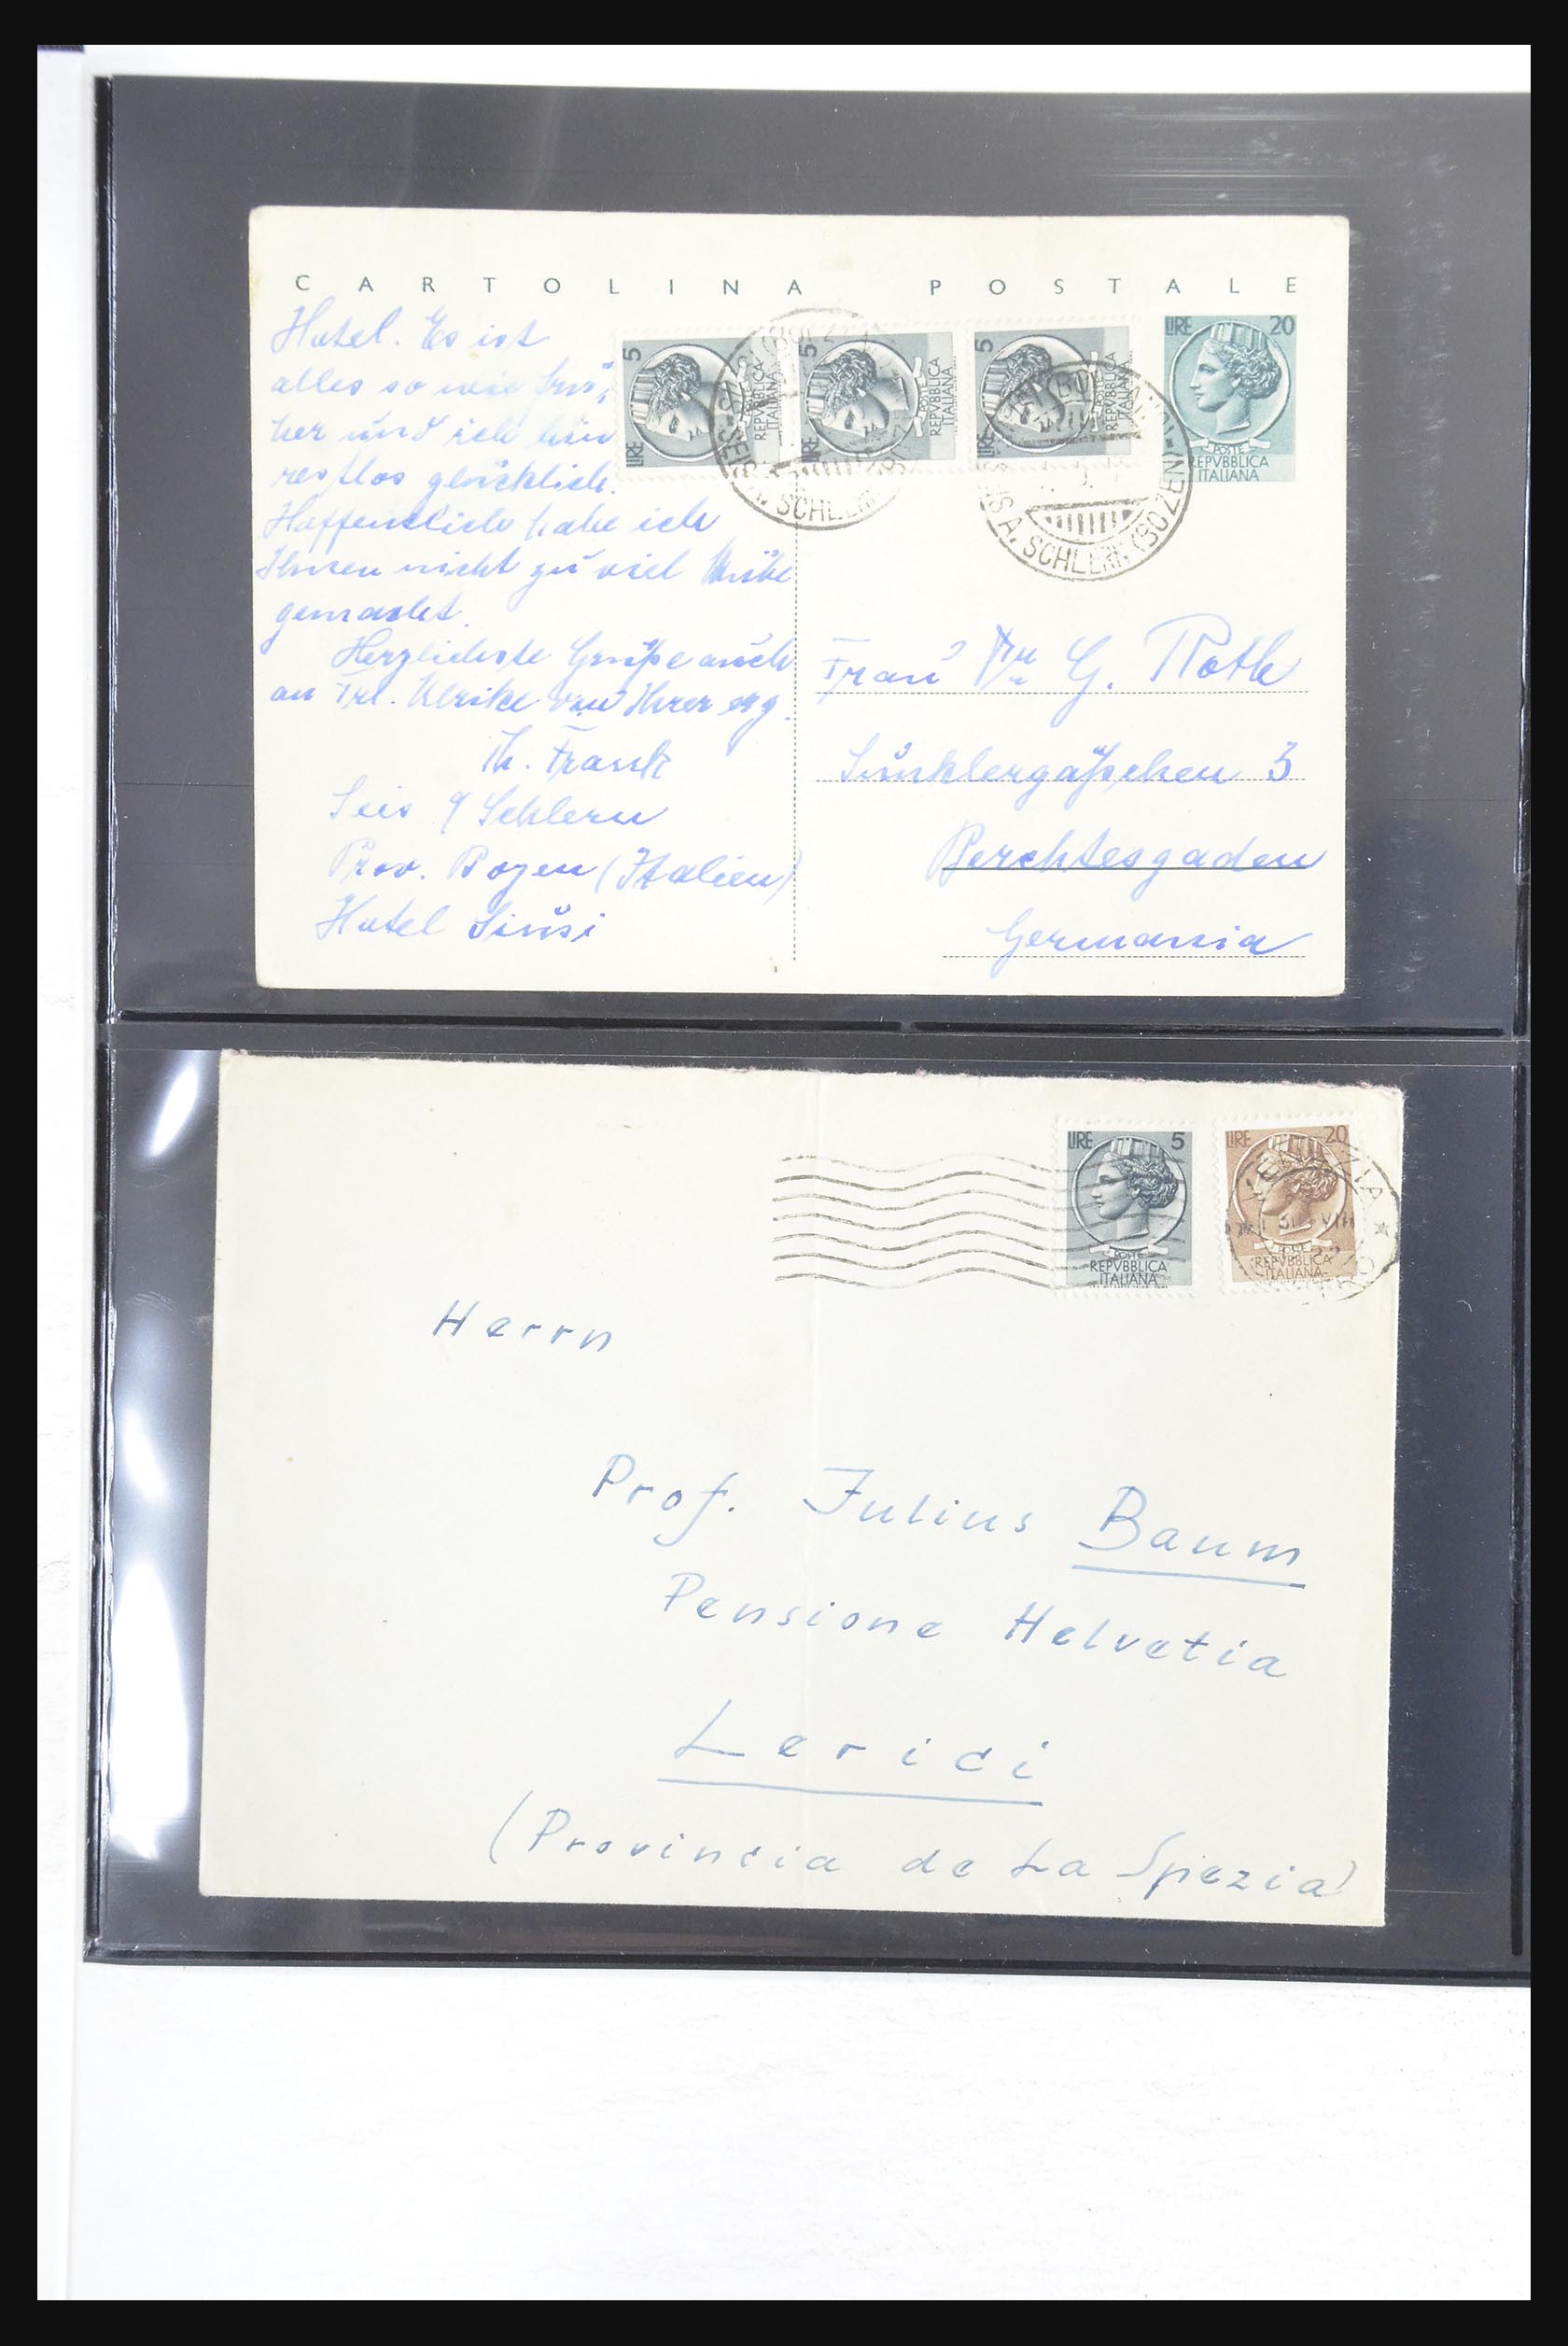 CARTOLINA POSTALE
Hotel. Es ist
alles so wie frü-
her und ich bin
restlos glücklich.
Hoffentlich habe ich
Ihnen nicht zu viel Mühe
gemacht.
Herzlichste Grüße auch
an Frl. Ulrike von Ihrer erg.
Th. Frank
Seis a/ Schlern
Prov. Bozen (Italien)
Hotel Seiusi
LIRE 5
POSTE
REPVBBLICA
ITALIANA
LIRE 5
POSTE
REPVBBLICA
ITALIANA
LIRE 5
POSTE
REPVBBLICA
ITALIANA
LIRE 20
POSTE
REPVBBLICA
ITALIANA
SEIS A. SCHLERN (BOZEN)
SEIS A. SCHLERN (BOZEN)
Frau Dr G. Roth
Berchtesgaden
Germania
LIRE 5
POSTE
REPVBBLICA
ITALIANA
LIRE 20
POSTE
REPVBBLICA
ITALIANA
Herrn
Prof. Julius Baum
Pensione Helvetia
Lerici
(Provincia de La Spezia)